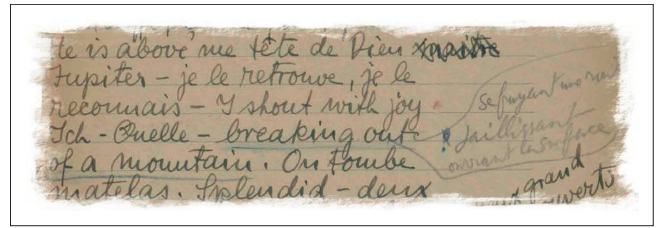 te is above me tête de Dieu
Jupiter – je le retrouve, je le
reconnais – I shout with joy
Ich – Quelle – breaking out
of a mountain. On tombe
matelas. Splendid – deux
se frayant
Jaillissant
ouvrant la surface
grand